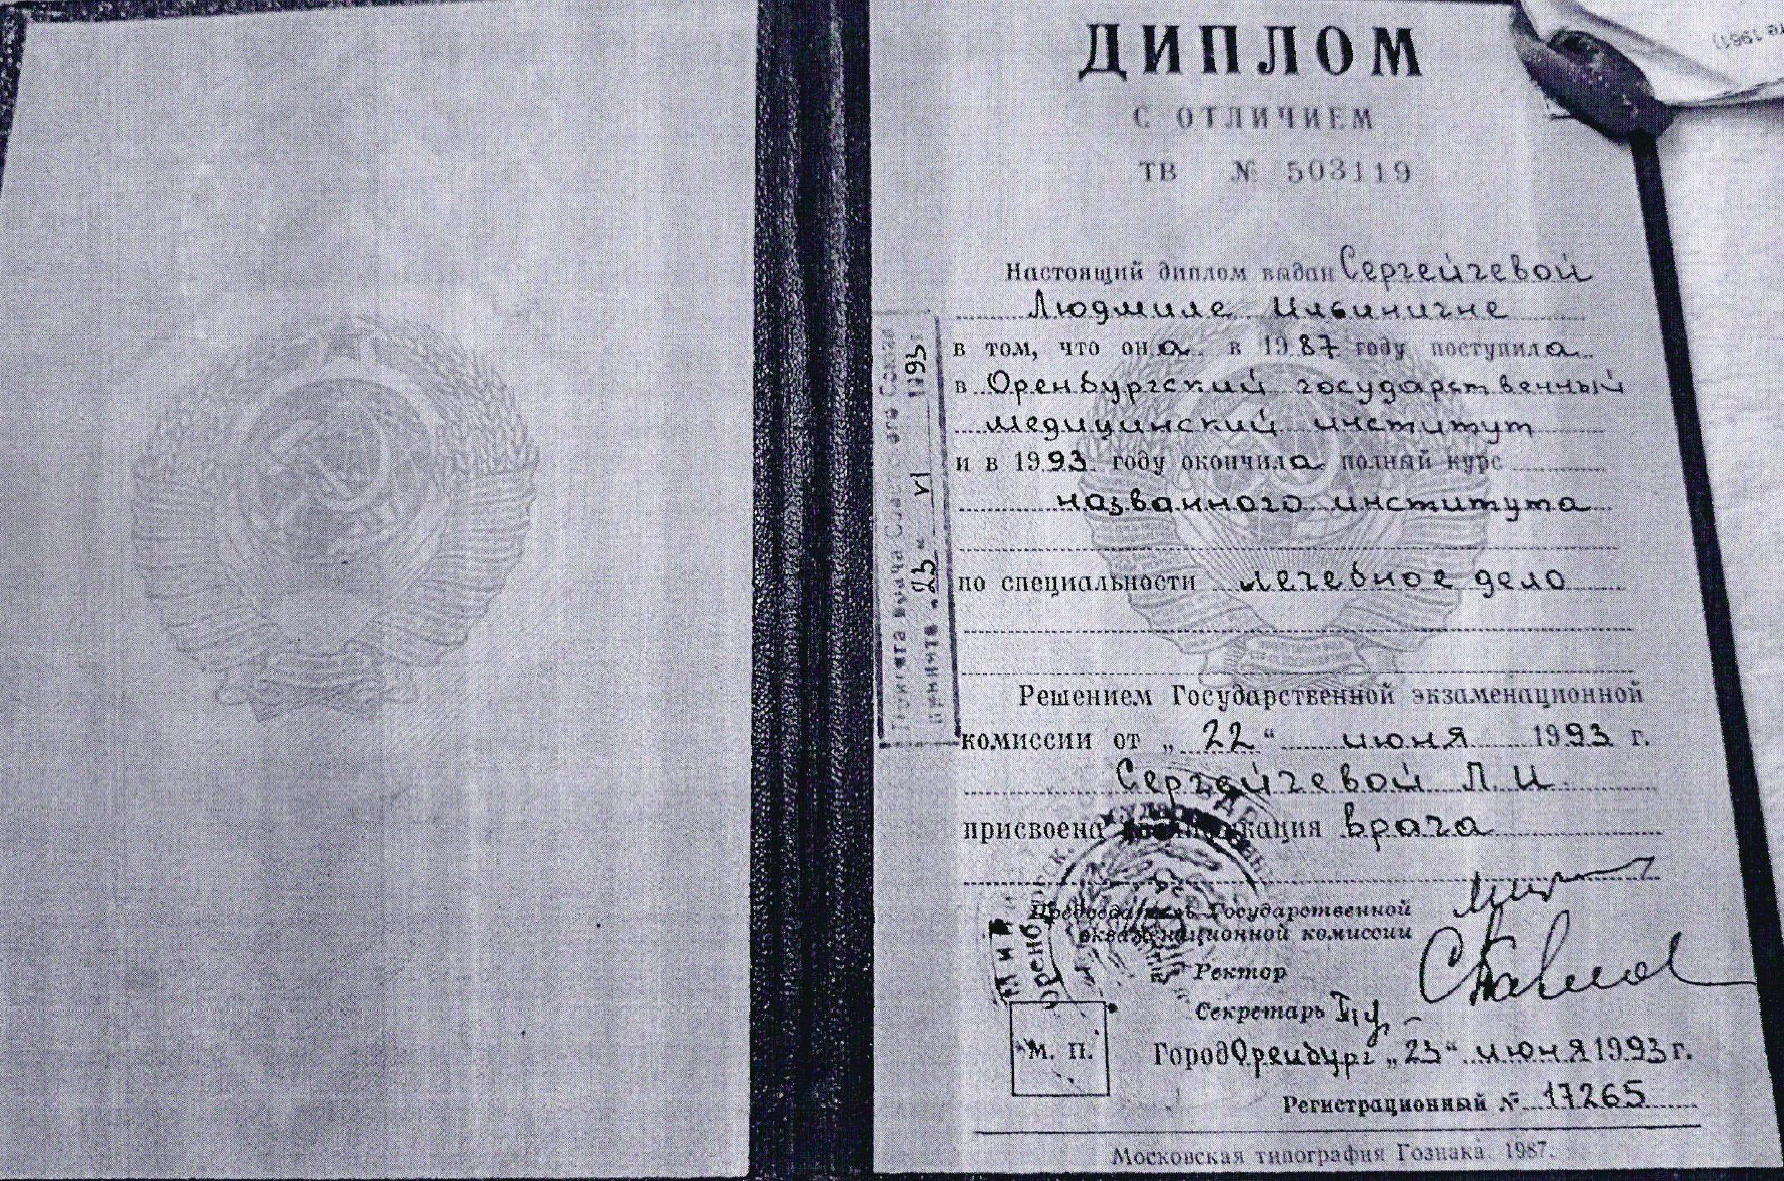 ДИПЛОМ
С ОТЛИЧИЕМ
ТВ № 503119
Настоящий диплом выдан Сергейчевой
Людмиле Ильиничне
в том, что она в 1987 году поступила
в Оренбургский государственный
медицинский институт
и в 1993 году окончила полный курс
названного института
по специальности лечебное дело
Решением Государственной экзаменационной
комиссии от „22“ июня 1993 г.
Сергейчевой Л.И.
присвоена квалификация врача
Председатель Государственной
экзаменационной комиссии
Ректор
Секретарь
М. П.
Город Оренбург „23“ июня 1993 г.
Регистрационный № 17265
Московская типография Гознака. 1987.
Присяга врача Советского Союза
принята „23“ VI 1993